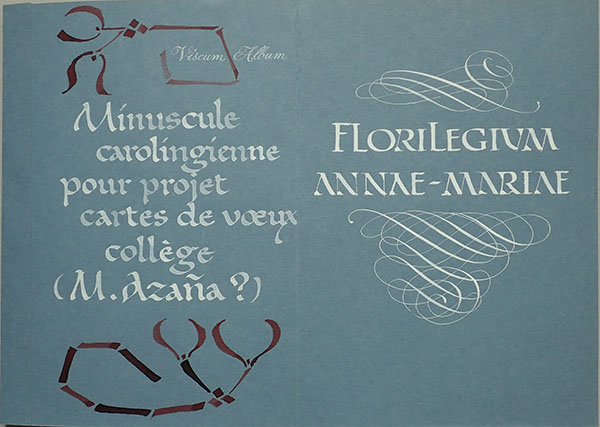 Viscum Album
Minuscule
carolingienne
pour projet
cartes de vœux
collège
(M. Azaña?)
FLORILEGIVM
ANNAE-MARIAE